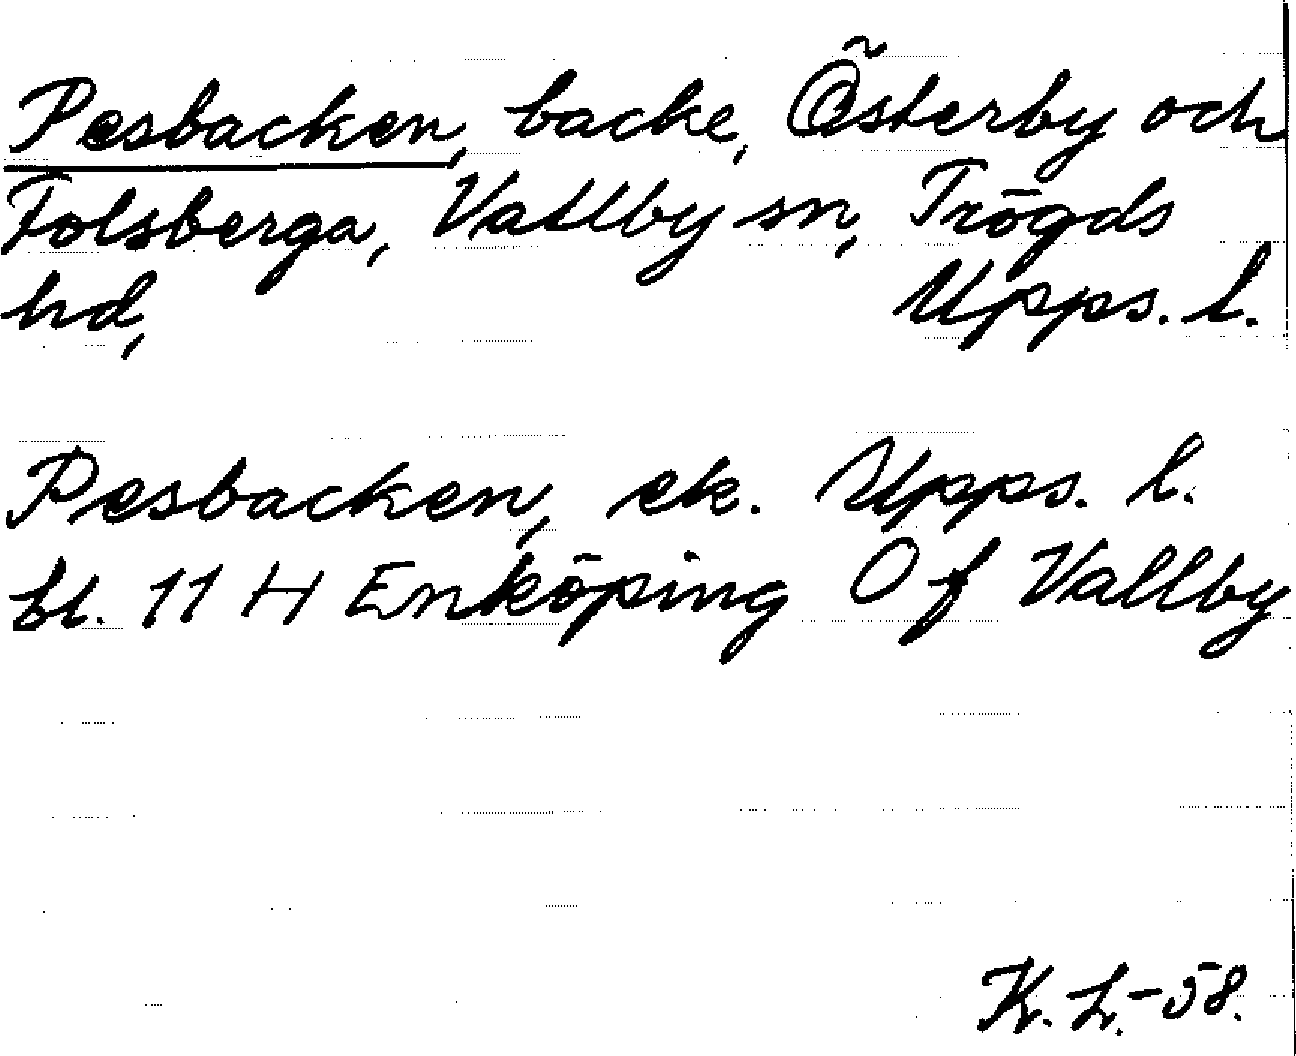 Pesbacken, backe, Österby och
Folsberga, Vallby sn, Trögds
hd, Upps. l.
Pesbacken, ek. Upps. l.
bl. 11 H Enköping Of Vallby
K. L.-58.